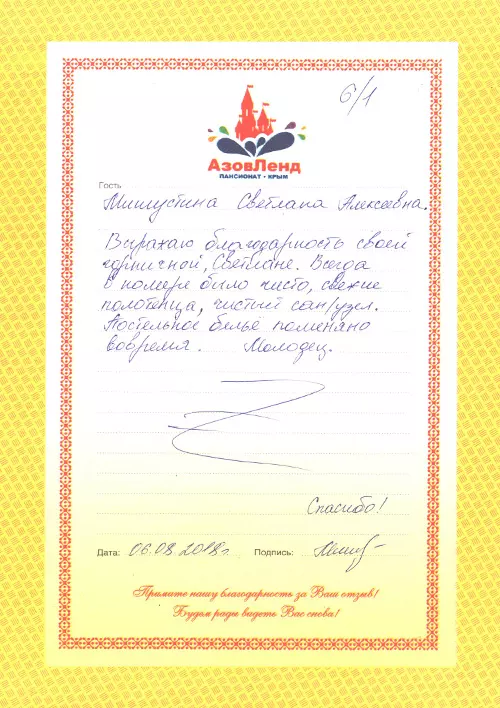 6/1
АзовЛенд
ПАНСИОНАТ • КРЫМ
Гость
Мишустина Светлана Алексеевна.
Выражаю благодарность своей
горничной, Светлане. Всегда
в номере было чисто, свежие
полотенца, чистый сан/узел.
Постельное бельё поменяно
вовремя. Молодец.
Спасибо!
Дата: 06.08.2018г. Подпись:
Примите нашу благодарность за Ваш отзыв!
Будем рады видеть Вас снова!